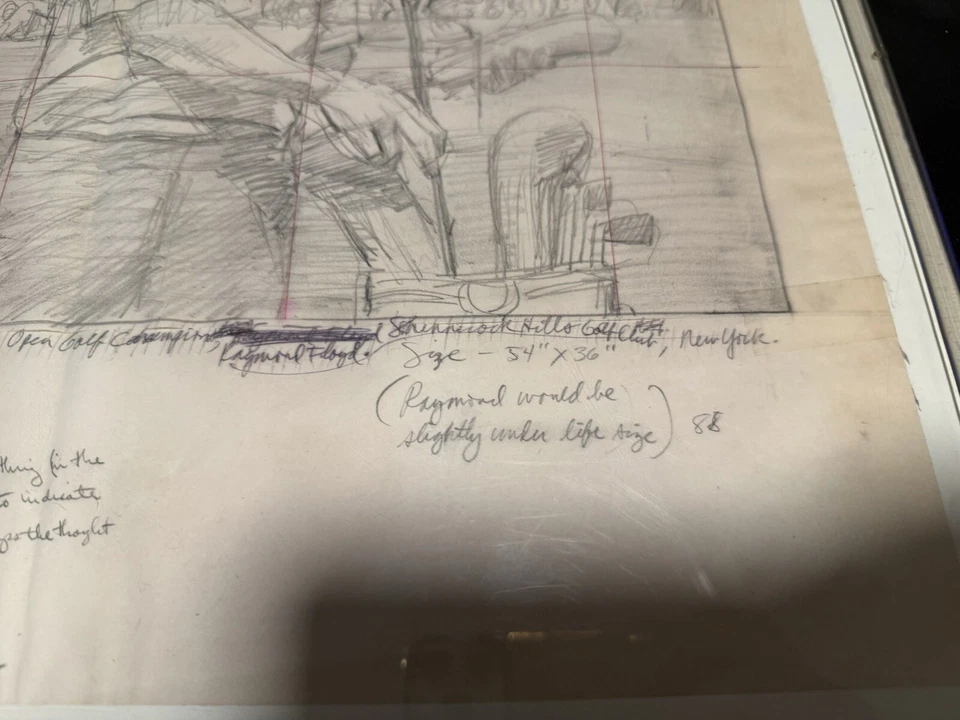 Open Golf Championship Shinnecock Hills Golf Club, New York.
Raymond Floyd.
Size - 54" X 36"
(Raymond would be
slightly under life size)
thing for the
to indicate
the thought